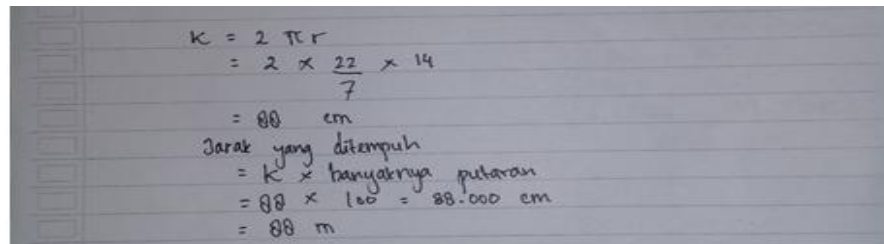 K = 2 πr
= 2 × 22/7 × 14
= 88 cm
Jarak yang ditempuh
= K × banyaknya putaran
= 88 × 100 = 88.000 cm
= 88 m